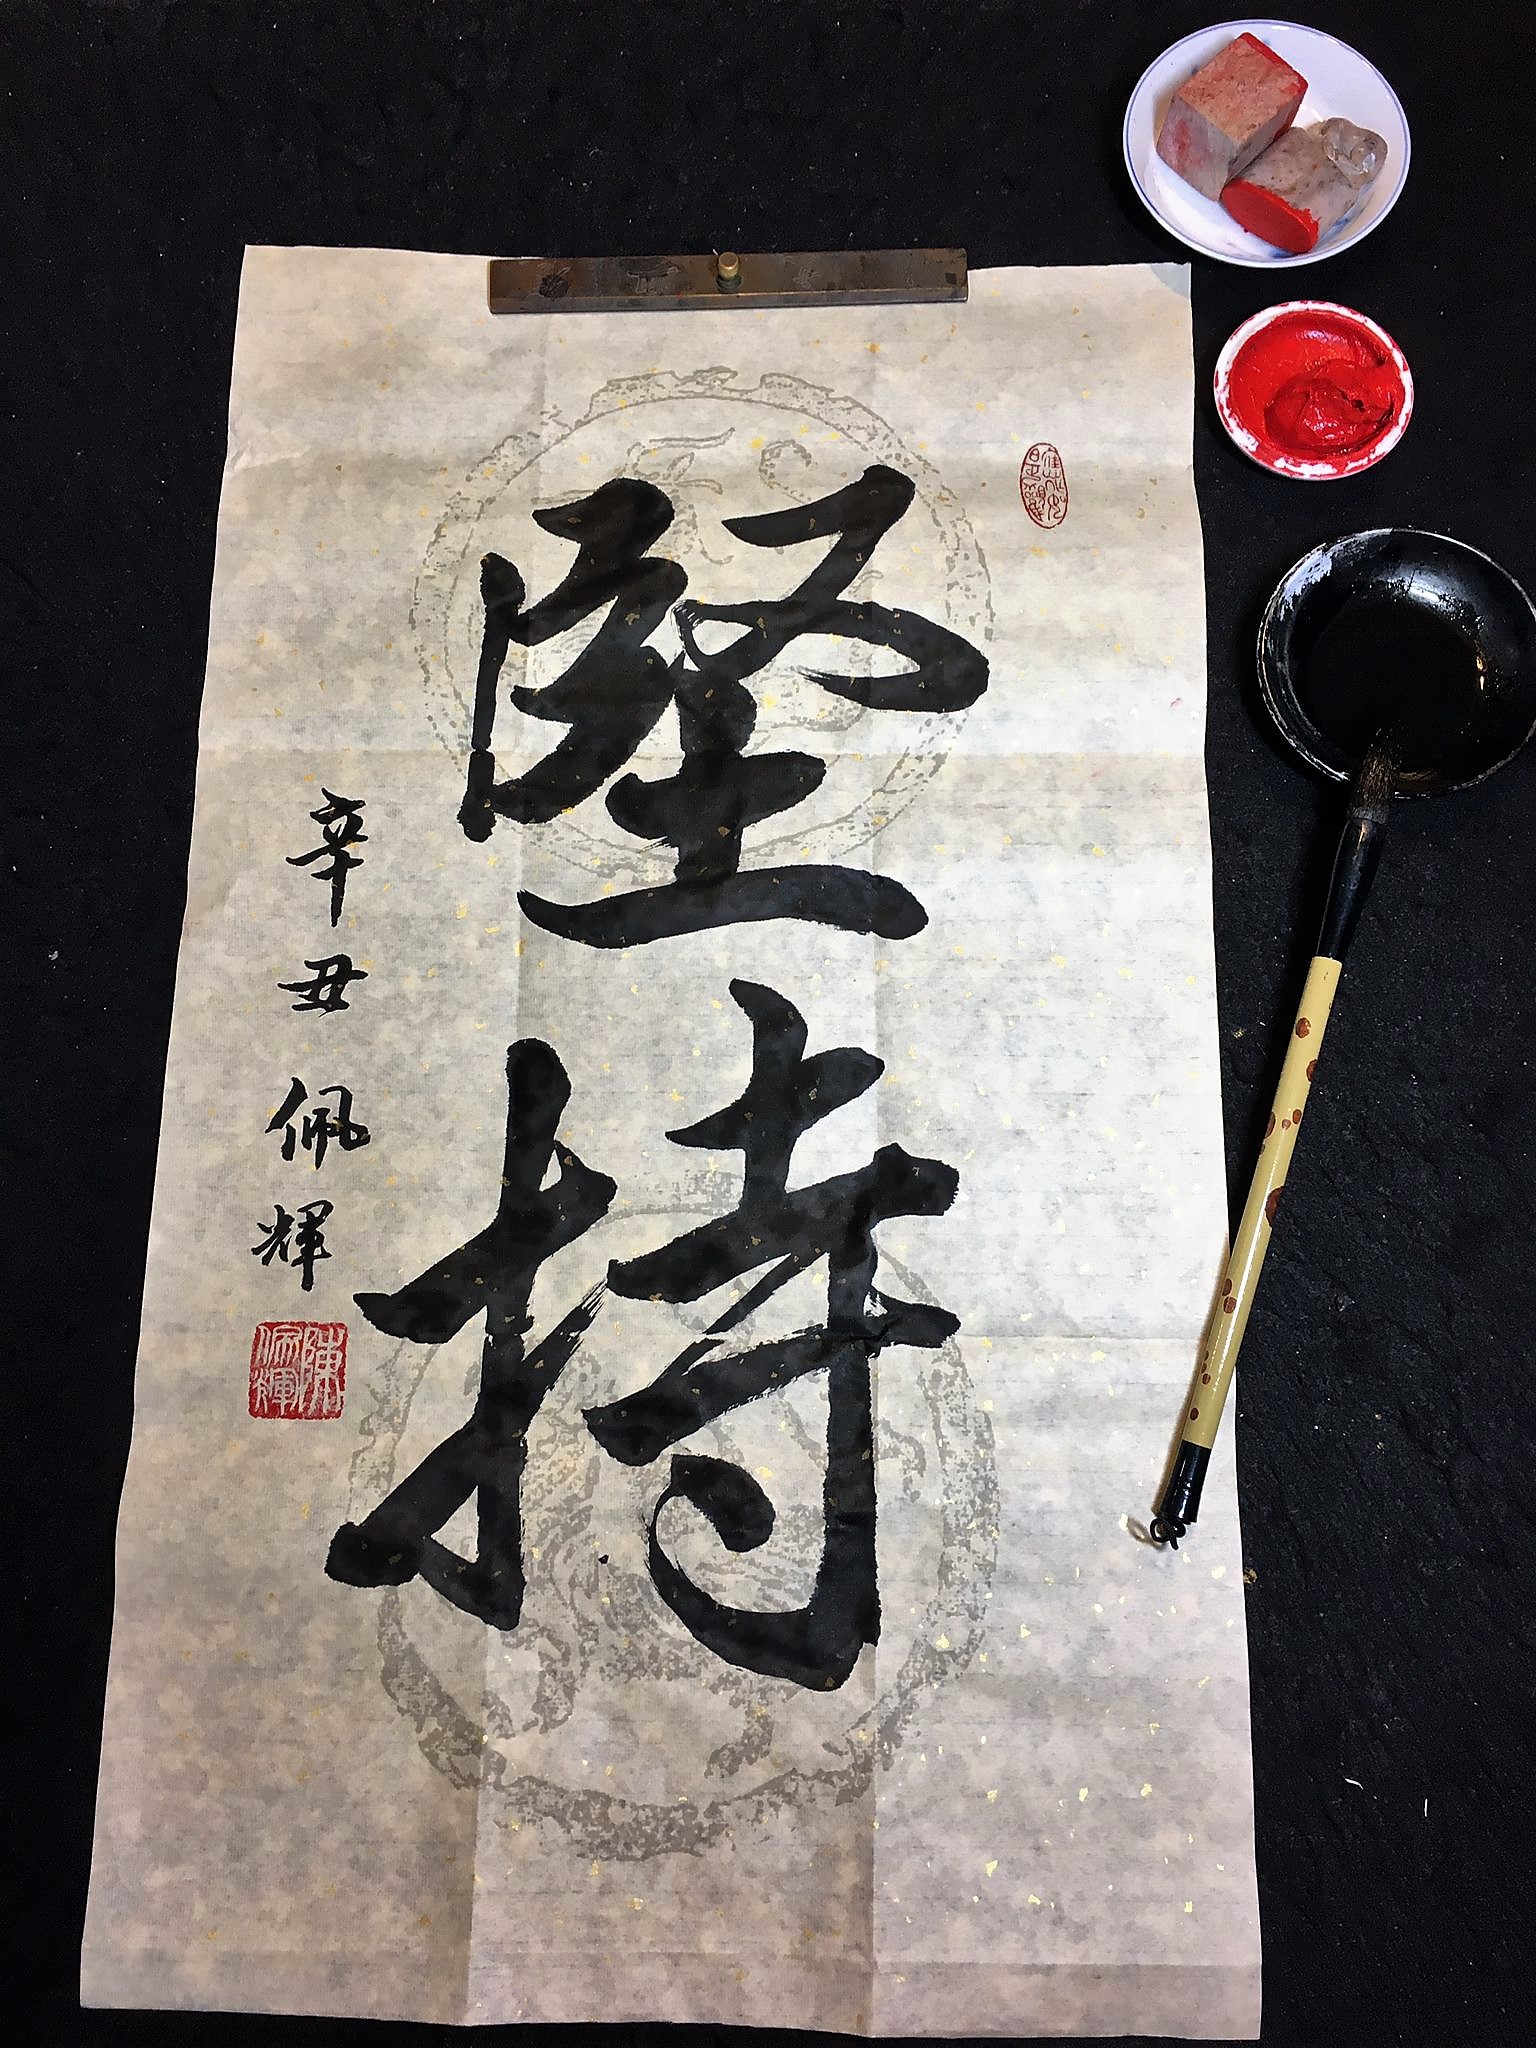 堅持
辛丑 佩輝
陳佩輝